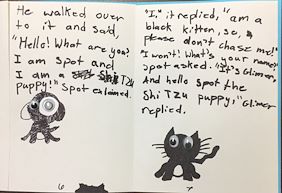 He walked over
to it and said,
"Hello! What are you?
I am Spot and
I am a Shi Tzu
puppy!" Spot exlaimed.
6
"I," it replied, "am a
black kitten, so,
please don't chase me!"
"I won't! What's your name?"
Spot asked. "It's Glimer,
And hello Spot the
Shi Tzu puppy," Glimer
replied.
7